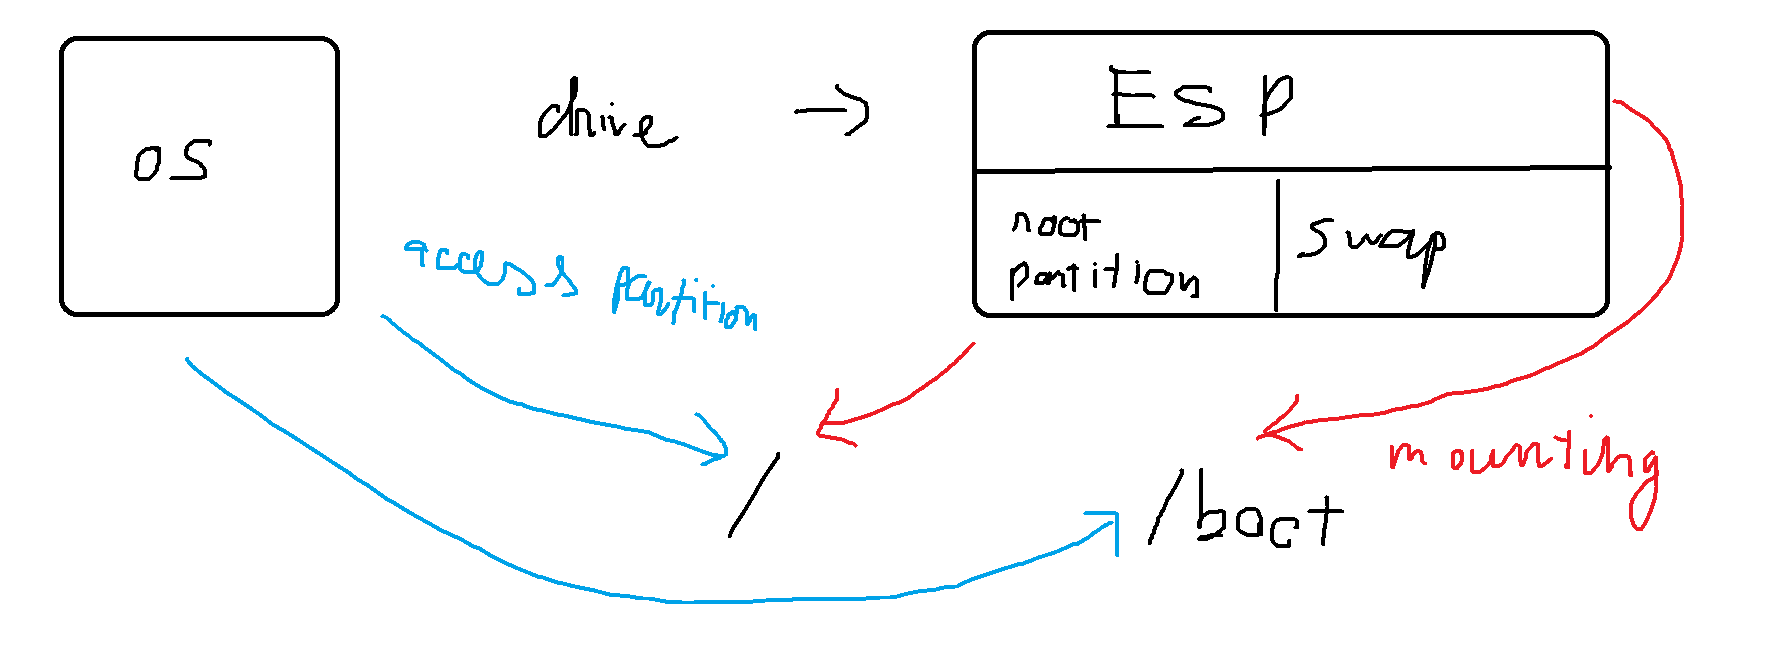 os
drive →
ESP
root
partition
swap
access partition
/
/boot
mounting